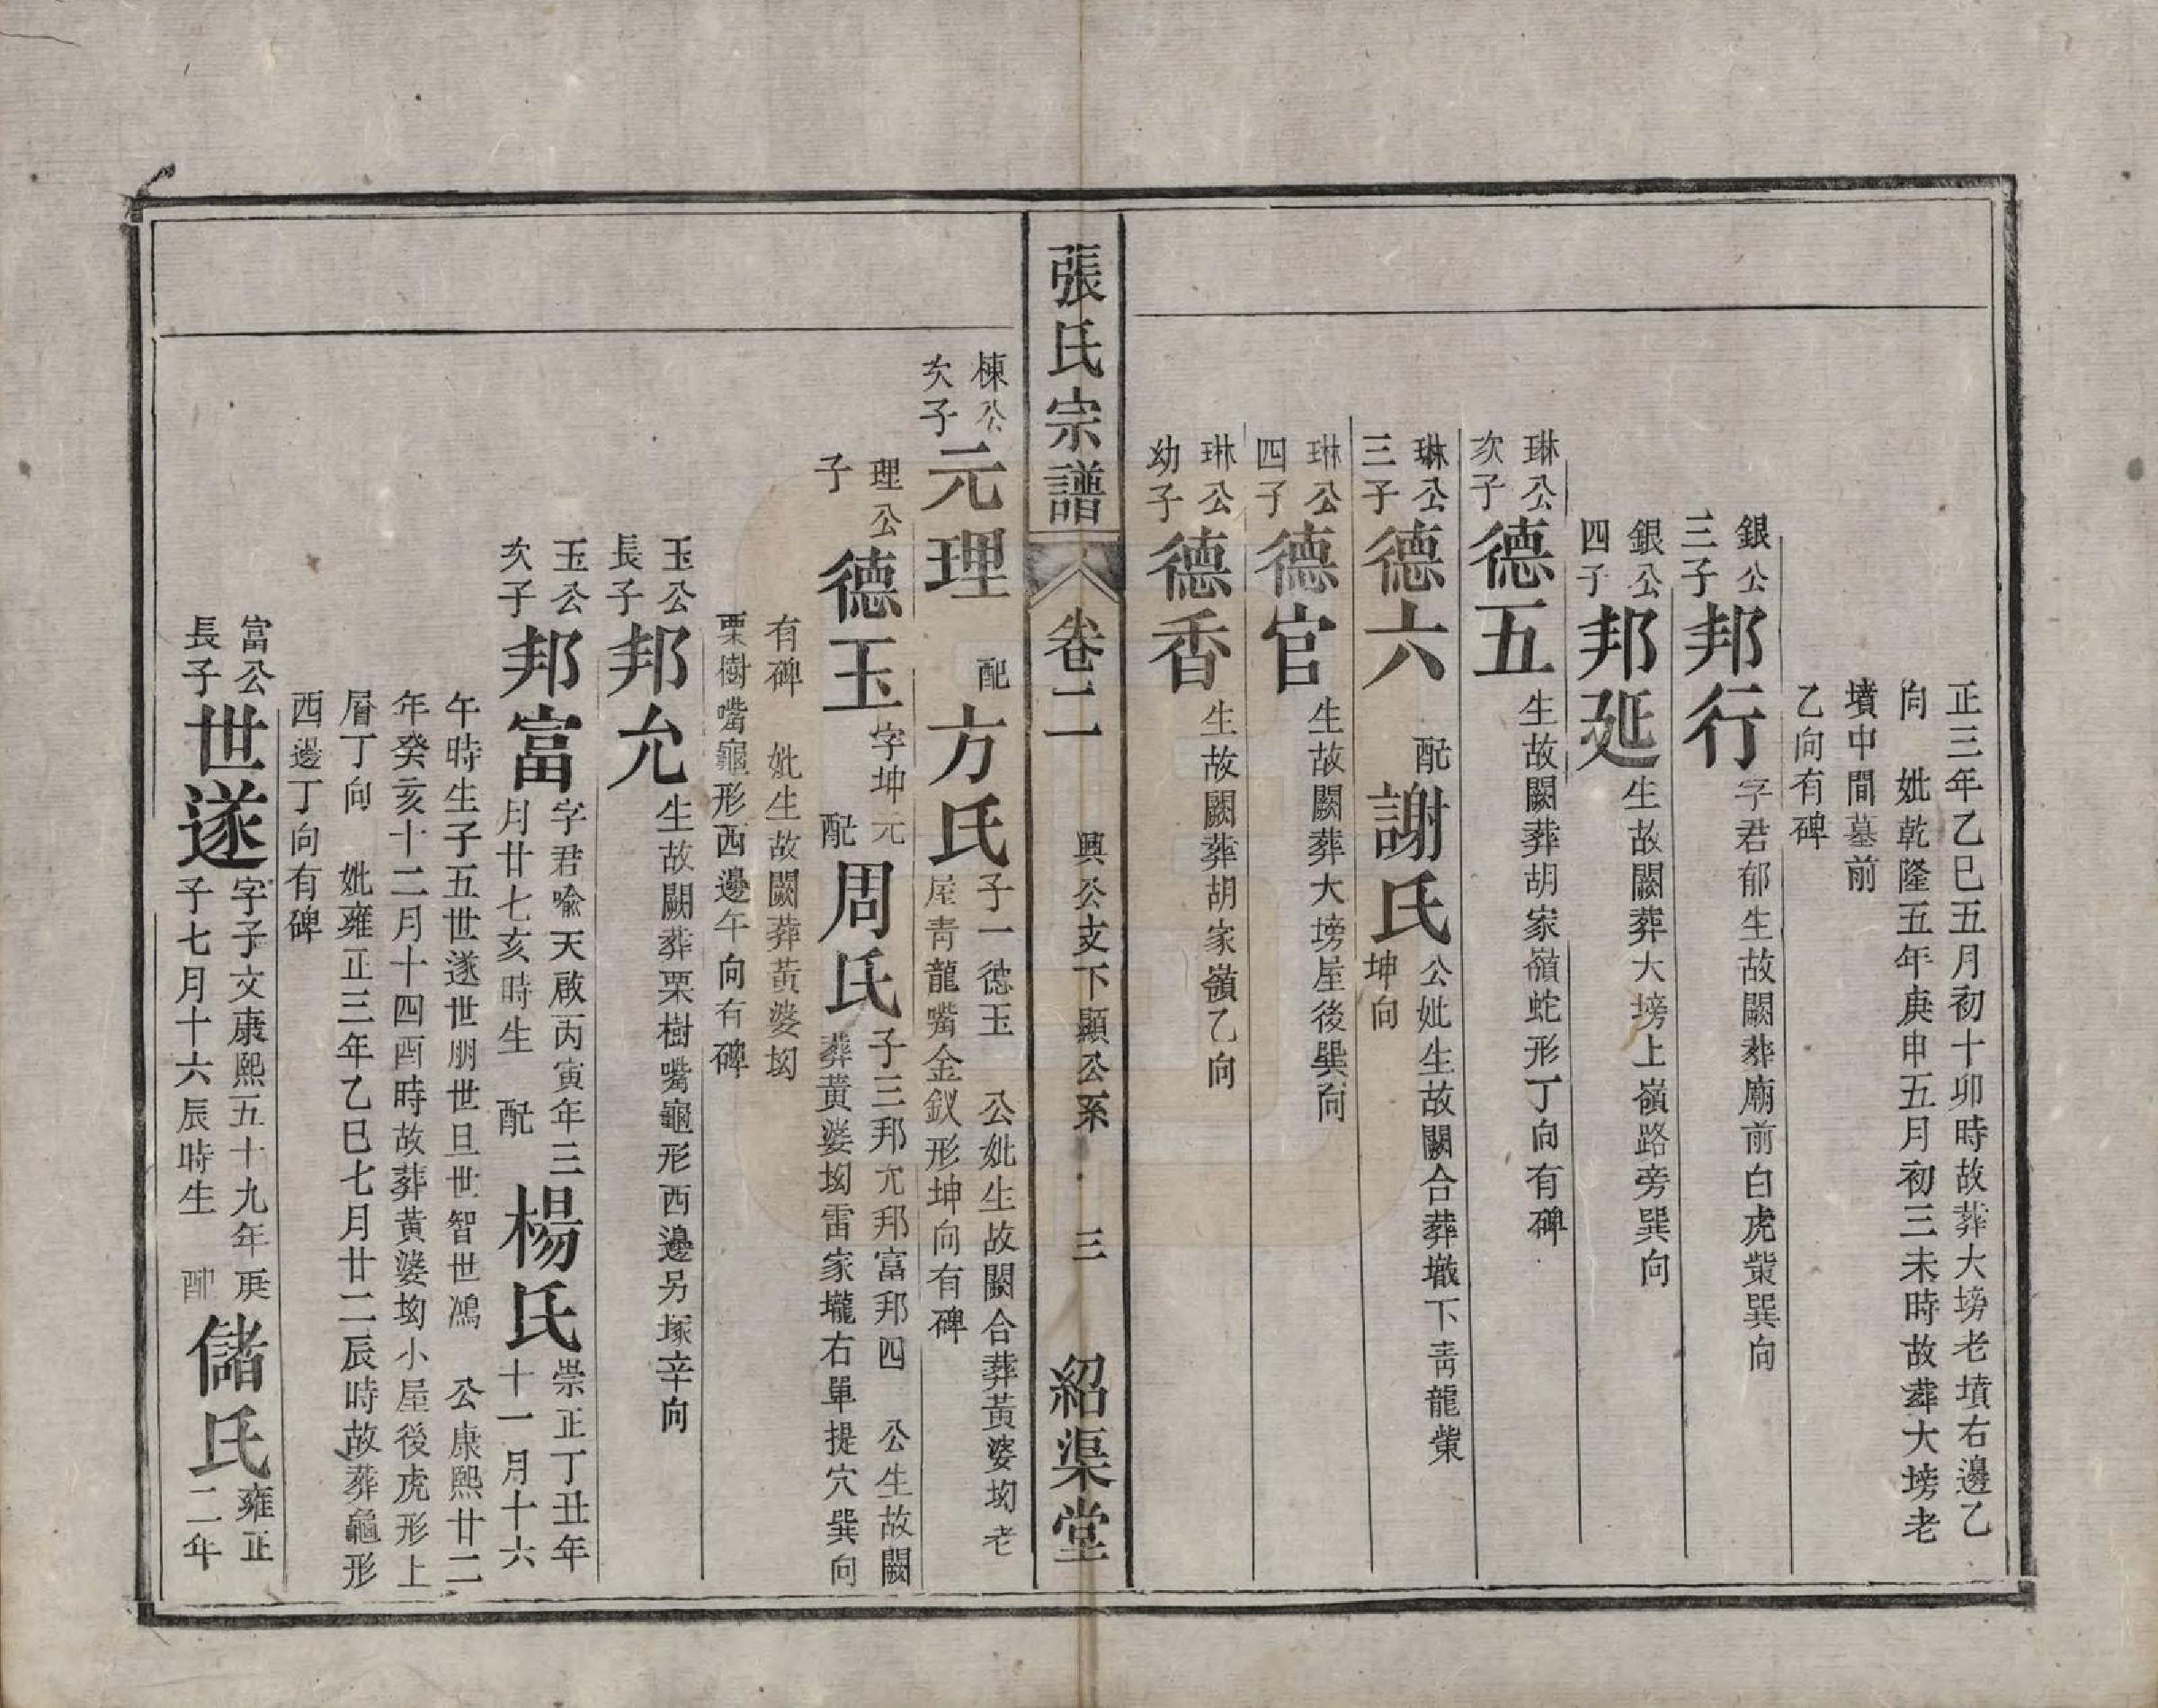 正三年乙巳五月初十卯時故葬大塝老墳右邊乙
向　妣乾隆五年庚申五月初三未時故葬大塝老
墳中間墓前
乙向有碑
銀公三子邦行字君郁生故闕葬廟前白虎巣巽向
銀公四子邦延生故闕葬大塝上嶺路旁巽向
琳公次子德五生故闕葬胡家嶺蛇形丁向有碑
琳公三子德六　配謝氏公妣生故闕合葬墩下靑龍巣坤向
琳公四子德官生故闕葬大塝屋後巽向
琳公幼子德香生故闕葬胡家嶺乙向
張氏宗譜　卷二　興公支下顯公系　三　紹渠堂
棟公次子元理　配方氏子一德玉　公妣生故闕合葬黃婆坳老屋靑龍嘴金釵形坤向有碑
理公子德玉字坤元　配周氏子三邦允邦富邦四　公生故闕葬黃婆坳雷家壠右單提穴巽向
有碑　妣生故闕葬黃婆坳
栗樹嘴龜形西邊午向有碑
玉公長子邦允生故闕葬栗樹嘴龜形西邊另塚辛向
玉公次子邦富字君喻天啟丙寅年三月廿七亥時生　配楊氏崇正丁丑年十一月十六
午時生子五世遂世朋世旦世智世鴻　公康熙廿二
年癸亥十二月十四酉時故葬黃婆坳小屋後虎形上
層丁向　妣雍正三年乙巳七月廿二辰時故葬龜形
西邊丁向有碑
富公長子世遂字子文康熙五十九年庚子七月十六辰時生　配儲氏雍正二年